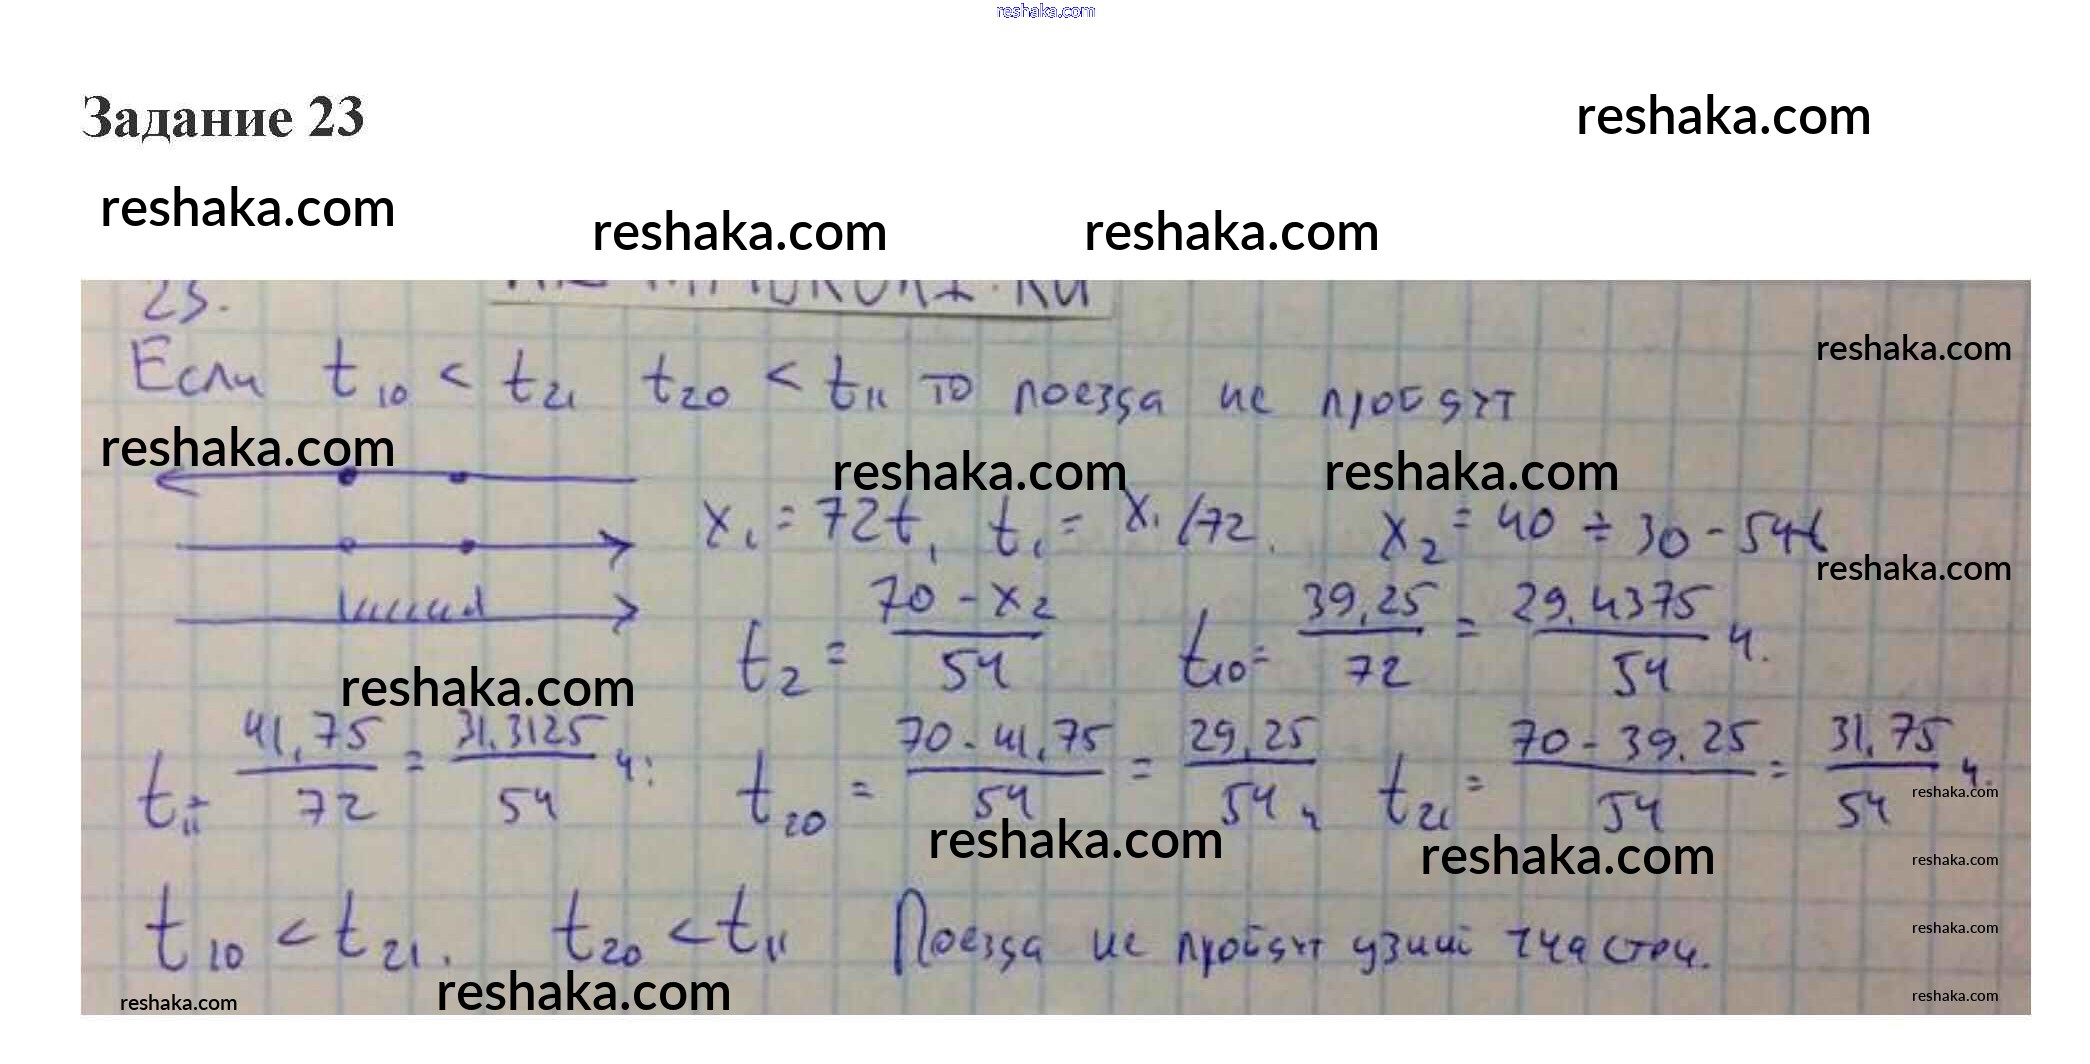 reshaka.com
Задание 23
reshaka.com
reshaka.com
reshaka.com
reshaka.com
23.
Если t₁₀ < t₂₁ t₂₀ < t₁₁ то поезда не пройдут
reshaka.com
reshaka.com
reshaka.com
reshaka.com
x₁ = 72t, t₁ = x₁/72. x₂ = 40 ÷ 30 - 54t
reshaka.com
t₂ = (70 - x₂)/54 t₁₀ = 39,25/72 = 29,4375/54 ч.
reshaka.com
t₁₁ = 41,75/72 = 31,3125/54 ч; t₂₀ = (70 - 41,75)/54 = 29,25/54 ч t₂₁ = (70 - 39,25)/54 = 31,75/54 ч.
reshaka.com
reshaka.com
reshaka.com
reshaka.com
t₁₀ < t₂₁. t₂₀ < t₁₁ Поезда не пройдут узкий участок.
reshaka.com
reshaka.com
reshaka.com
reshaka.com